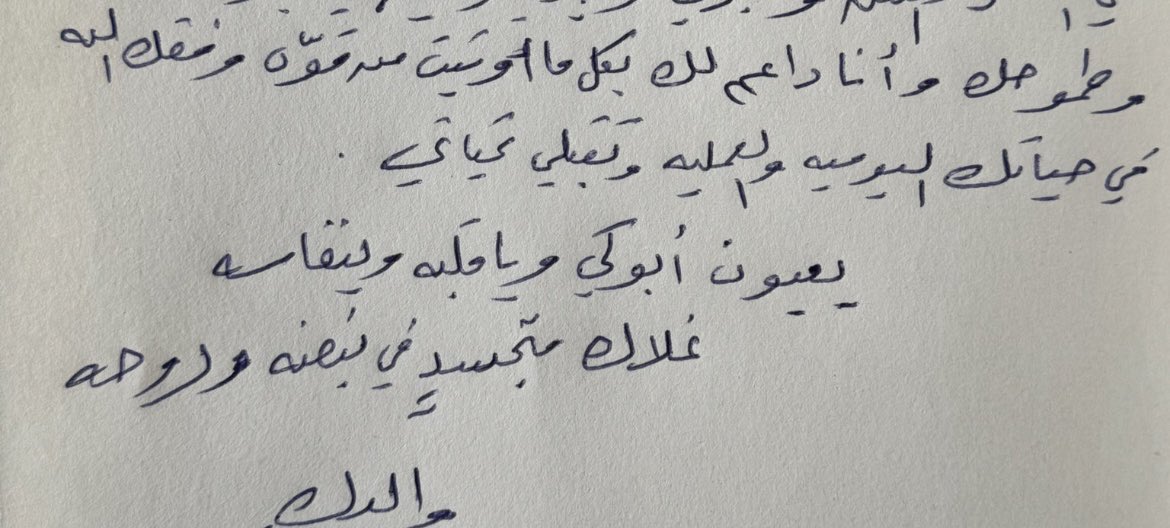 وطموحك وأنا داعم لك بكل ما أوتيت من قوّه وفقك الله
في حياتك اليوميه والعمليه وتقبلي تحياتي .
يعيون أبوكي ويا قلبه وينفاسه
غلاك متجسدٍ في نبضه وروحه
والدك